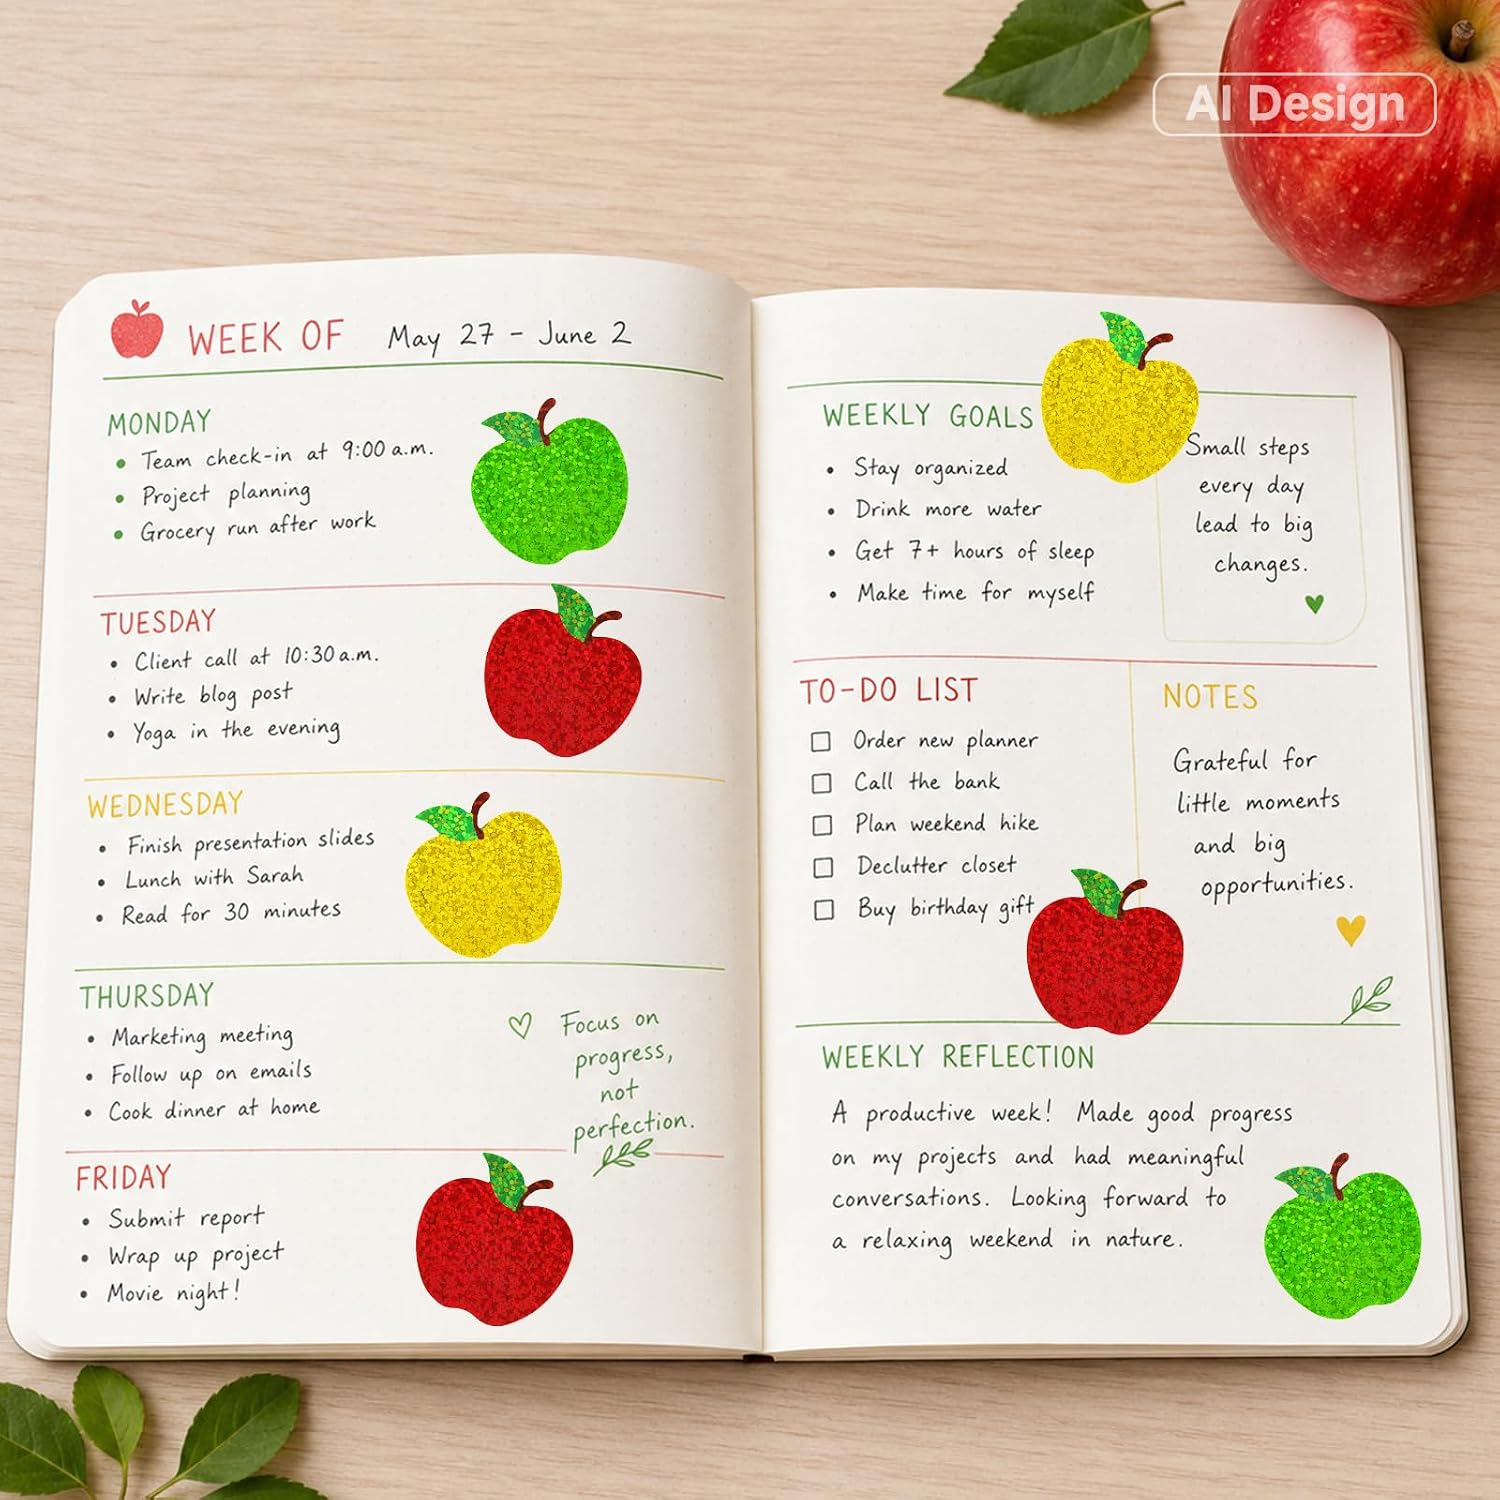 AI Design
WEEK OF May 27 - June 2
MONDAY
Team check-in at 9:00 a.m.
Project planning
Grocery run after work
TUESDAY
Client call at 10:30 a.m.
Write blog post
Yoga in the evening
WEDNESDAY
Finish presentation slides
Lunch with Sarah
Read for 30 minutes
THURSDAY
Marketing meeting
Follow up on emails
Cook dinner at home
Focus on
progress,
not
perfection.
FRIDAY
Submit report
Wrap up project
Movie night!
WEEKLY GOALS
Stay organized
Drink more water
Get 7+ hours of sleep
Make time for myself
Small steps
every day
lead to big
changes.
TO-DO LIST
Order new planner
Call the bank
Plan weekend hike
Declutter closet
Buy birthday gift
NOTES
Grateful for
little moments
and big
opportunities.
WEEKLY REFLECTION
A productive week! Made good progress
on my projects and had meaningful
conversations. Looking forward to
a relaxing weekend in nature.